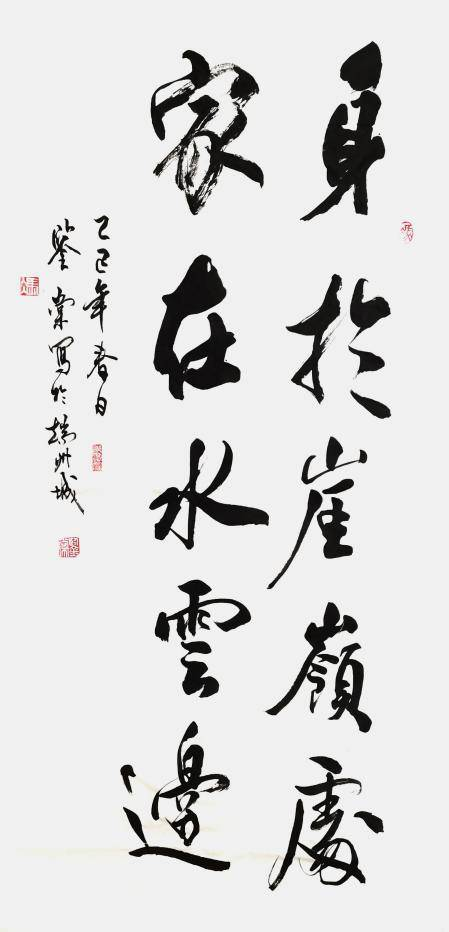 身於崖嶺處
家在水雲邊
乙巳年春日
鑒棠寫於端州城